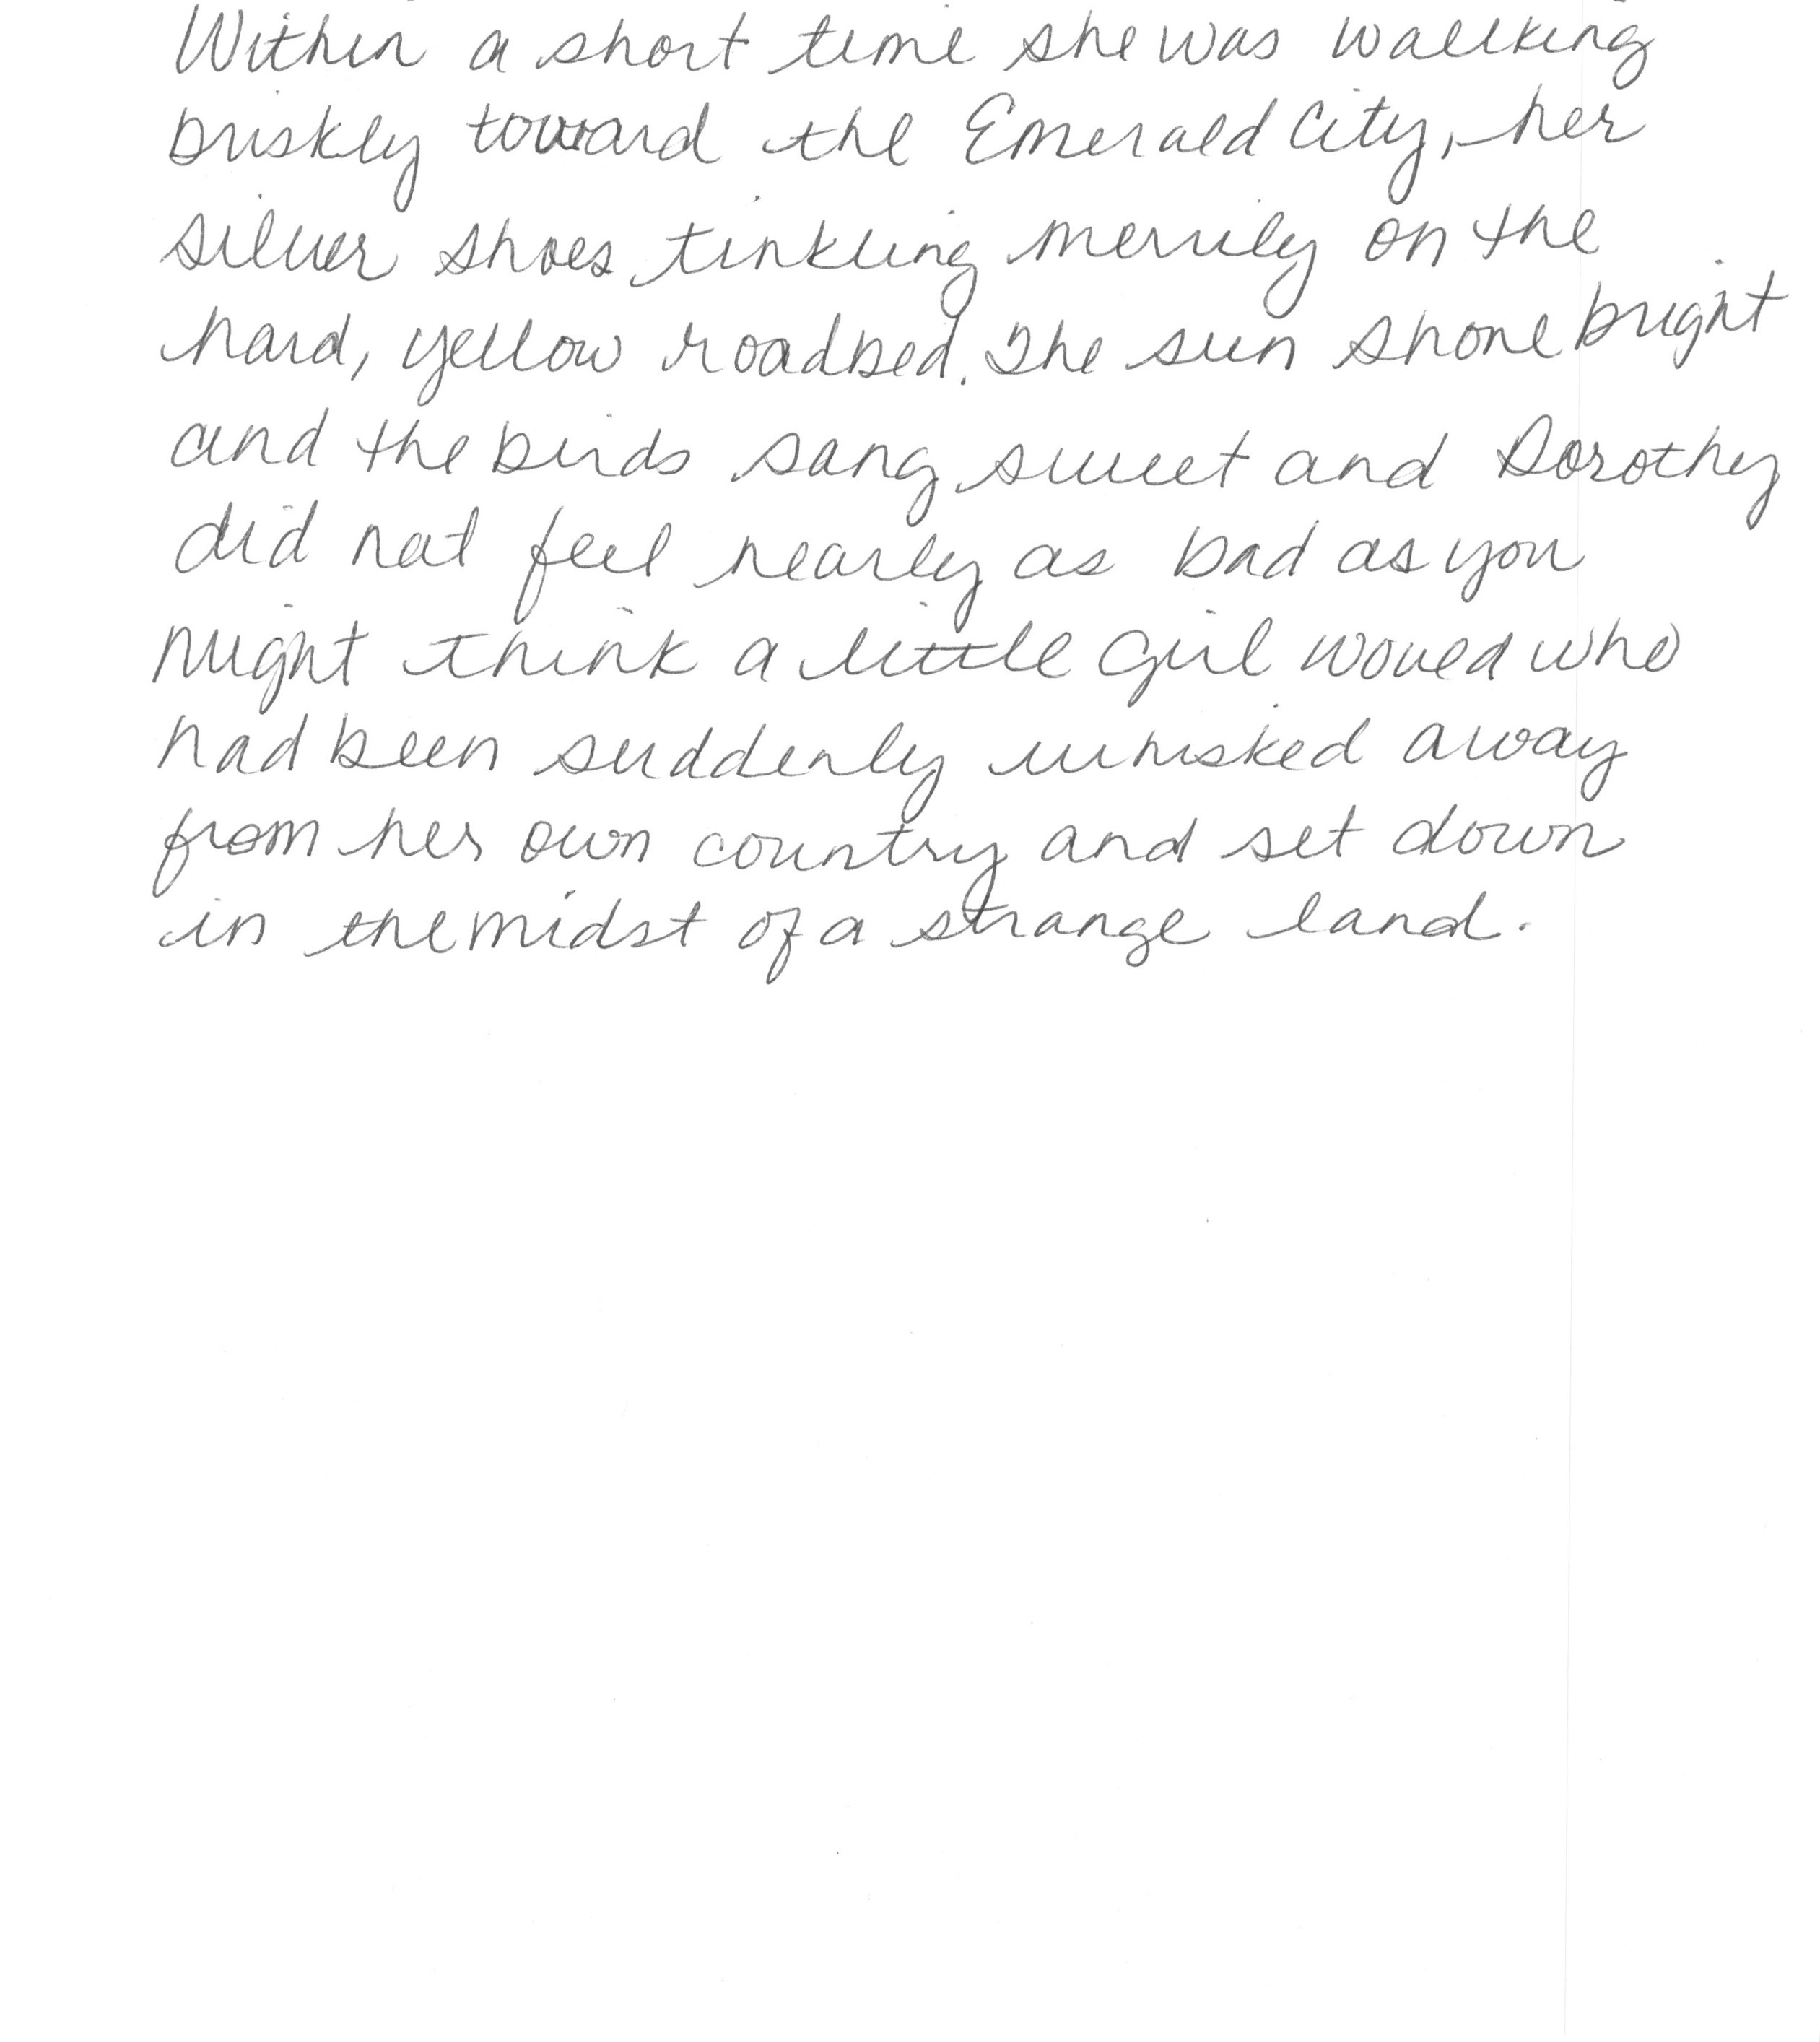 Within a short time she was wallking
briskly toward the Emerald City, her
silver shoes tinkling merrily on the
hard, yellow roadbed. The sun shone bright
and the birds sang sweet and Dorothy
did not feel nearly as bad as you
might think a little girl would who
had been suddenly whisked away
from her own country and set down
in the midst of a strange land.